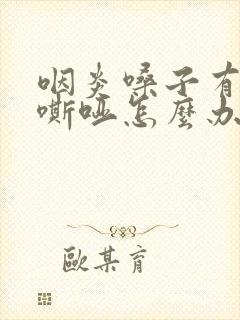 咽炎嗓子有
嘶哑怎麼办
歐某育